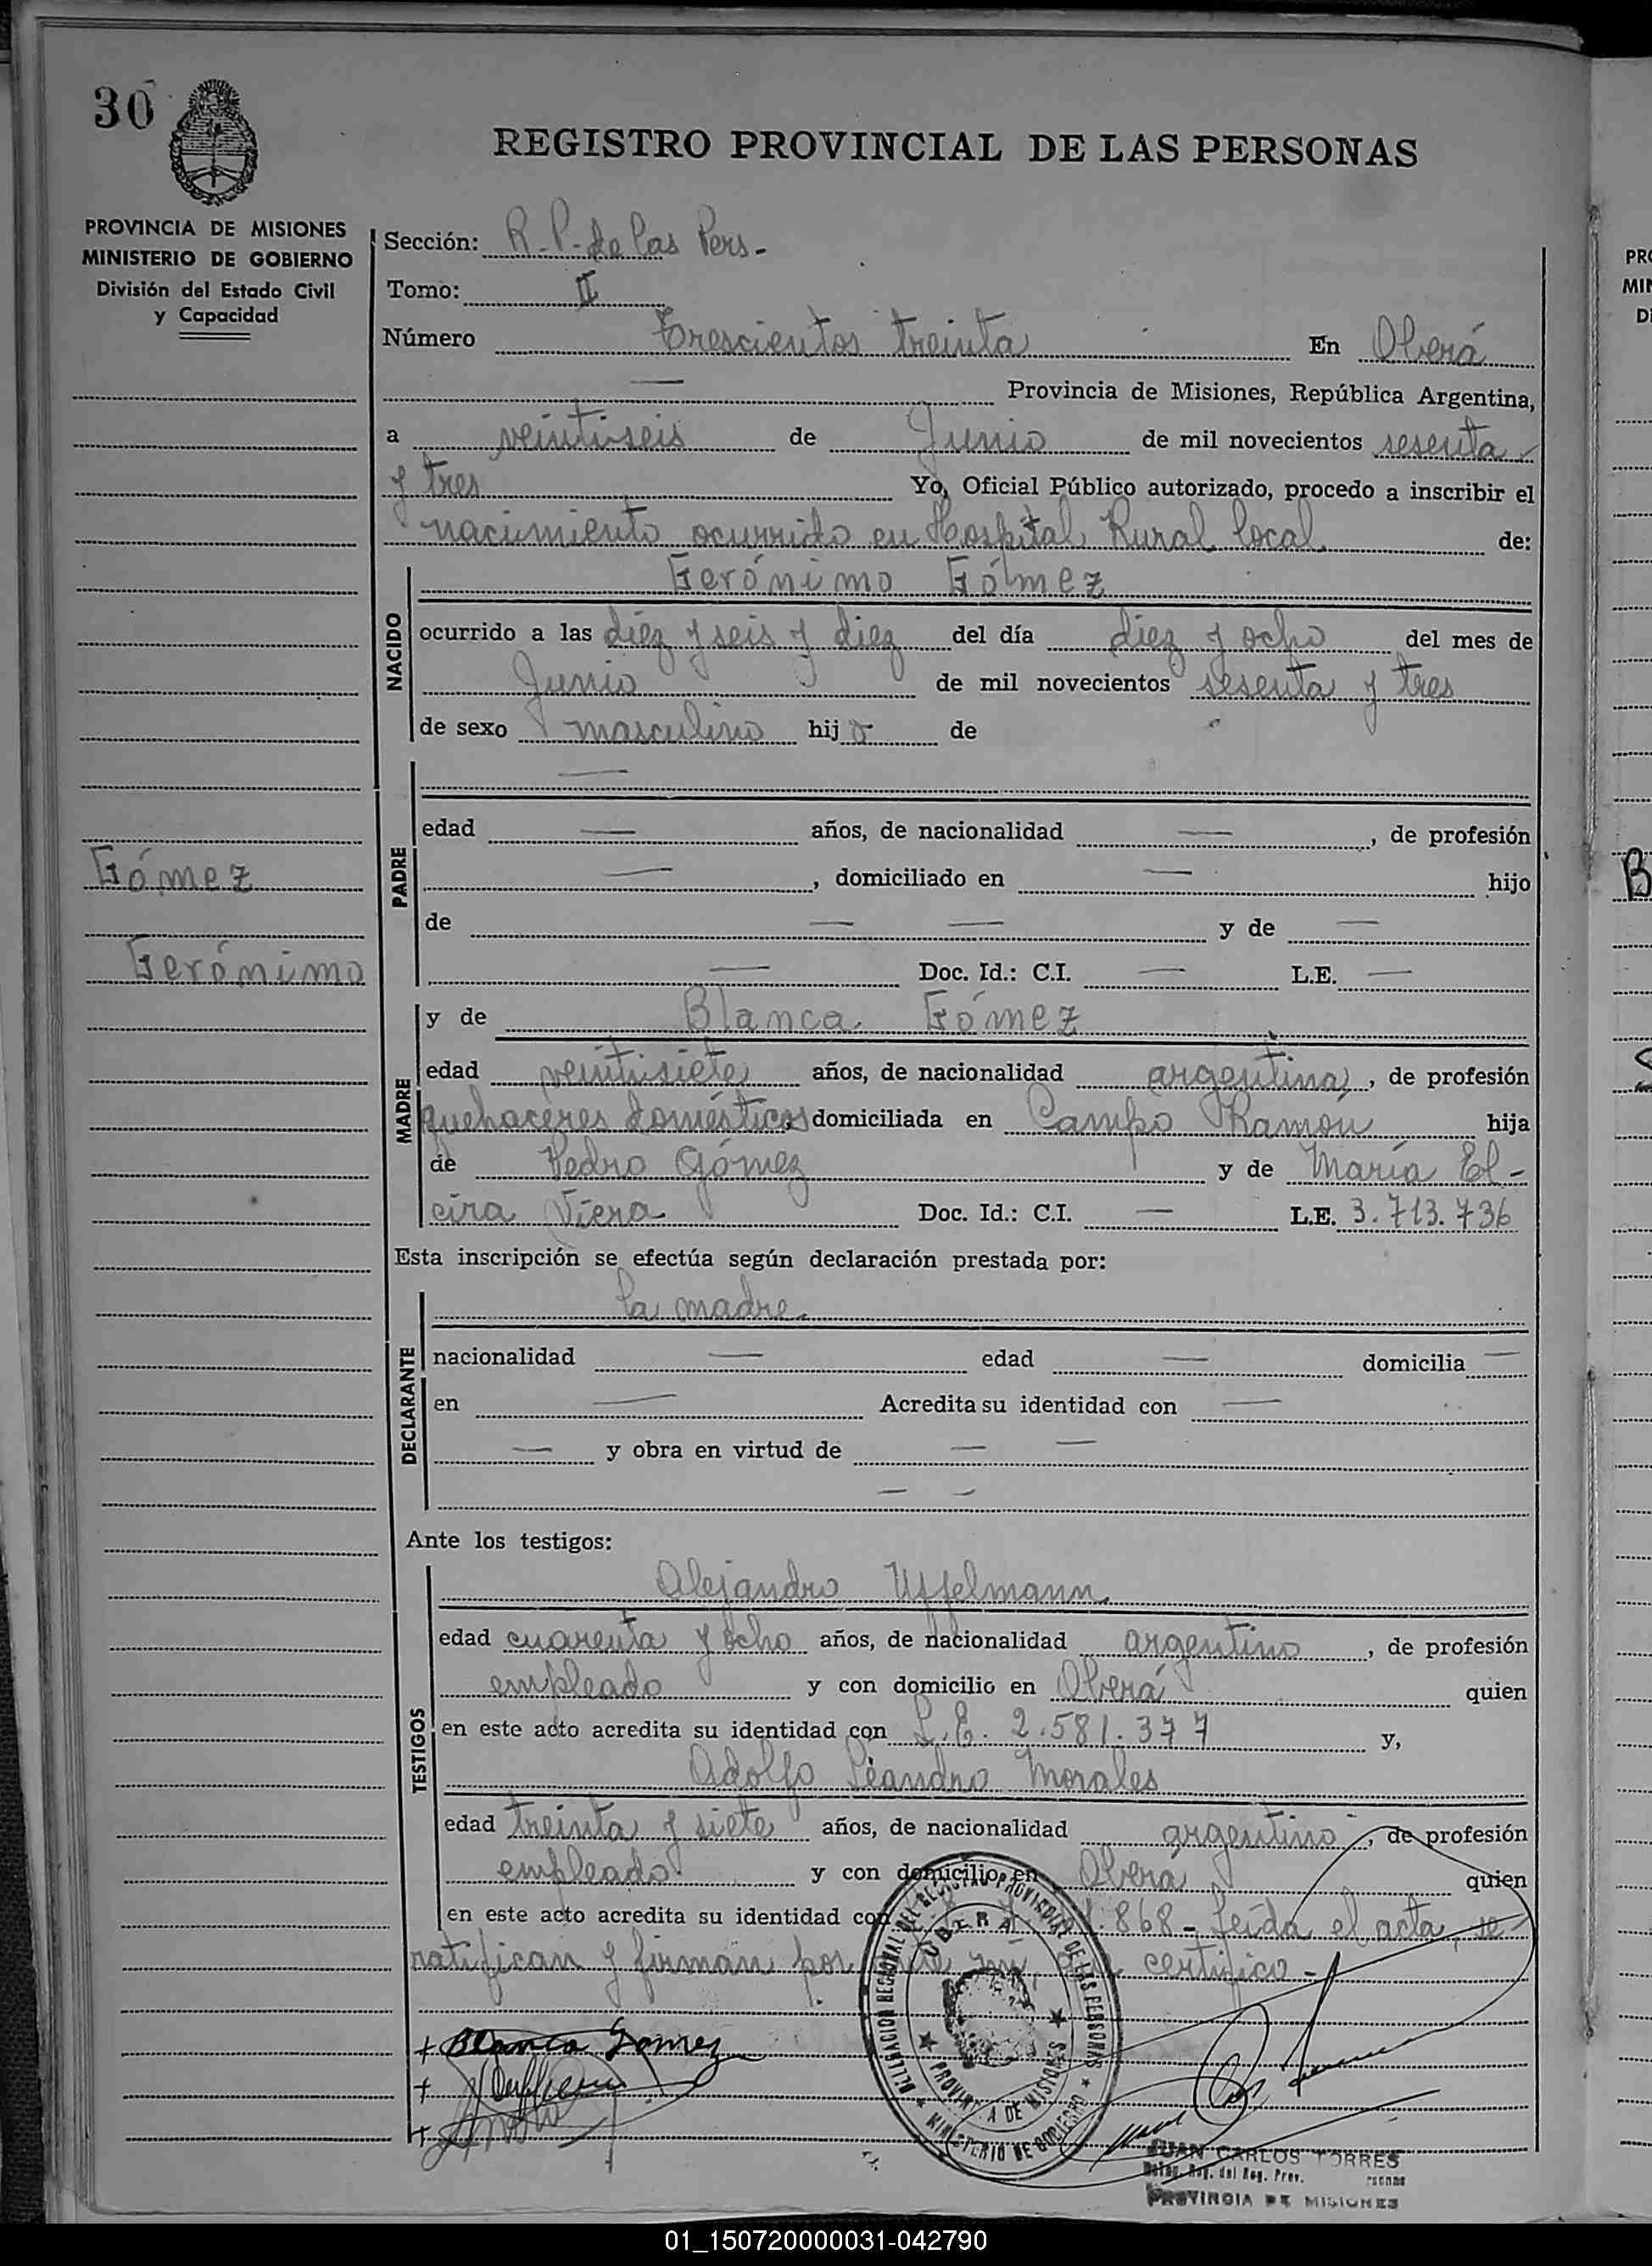 30
REGISTRO PROVINCIAL DE LAS PERSONAS
PROVINCIA DE MISIONES
MINISTERIO DE GOBIERNO
División del Estado Civil
y Capacidad
Sección: R.P. de las Pers.-
Tomo: II
Número Trescientos treinta En Oberá
Provincia de Misiones, República Argentina,
a veintiseis de Junio de mil novecientos sesenta
y tres Yo, Oficial Público autorizado, procedo a inscribir el
nacimiento ocurrido en Hospital Rural local de:
NACIDO
Gerónimo Gómez
ocurrido a las diez y seis y diez del día diez y ocho del mes de
Junio de mil novecientos sesenta y tres
de sexo masculino hijo de
PADRE
edad — años, de nacionalidad —, de profesión
—, domiciliado en — hijo
de — — y de —
— Doc. Id.: C.I. — L.E. —
Gómez
Gerónimo
MADRE
y de Blanca Gómez
edad veintisiete años, de nacionalidad argentina, de profesión
quehaceres domésticos domiciliada en Campo Ramón hija
de Pedro Gómez y de María El-
cira Viera Doc. Id.: C.I. — L.E. 3.713.736
Esta inscripción se efectúa según declaración prestada por:
DECLARANTE
la madre.
nacionalidad — edad — domicilia —
en — Acredita su identidad con —
— y obra en virtud de — —
— —
Ante los testigos:
TESTIGOS
Alejandro Uffelmann
edad cuarenta y ocho años, de nacionalidad argentino, de profesión
empleado y con domicilio en Oberá quien
en este acto acredita su identidad con L.E. 2.581.377 y,
Adolfo Leandro Morales
edad treinta y siete años, de nacionalidad argentino, de profesión
empleado y con domicilio en Oberá quien
en este acto acredita su identidad con .868- Leída el acta, se
ratifican y firman por ante certifico-
+ Blanca Gomez
+
+
DELEGACION REGIONAL DEL REGISTRO PROVINCIAL DE LAS PERSONAS
OBERA
PROVINCIA DE MISIONES
MINISTERIO DE GOBIERNO
JUAN CARLOS TORRES
Deleg. Reg. del Reg. Prov.
PROVINCIA DE MISIONES
01_150720000031-042790